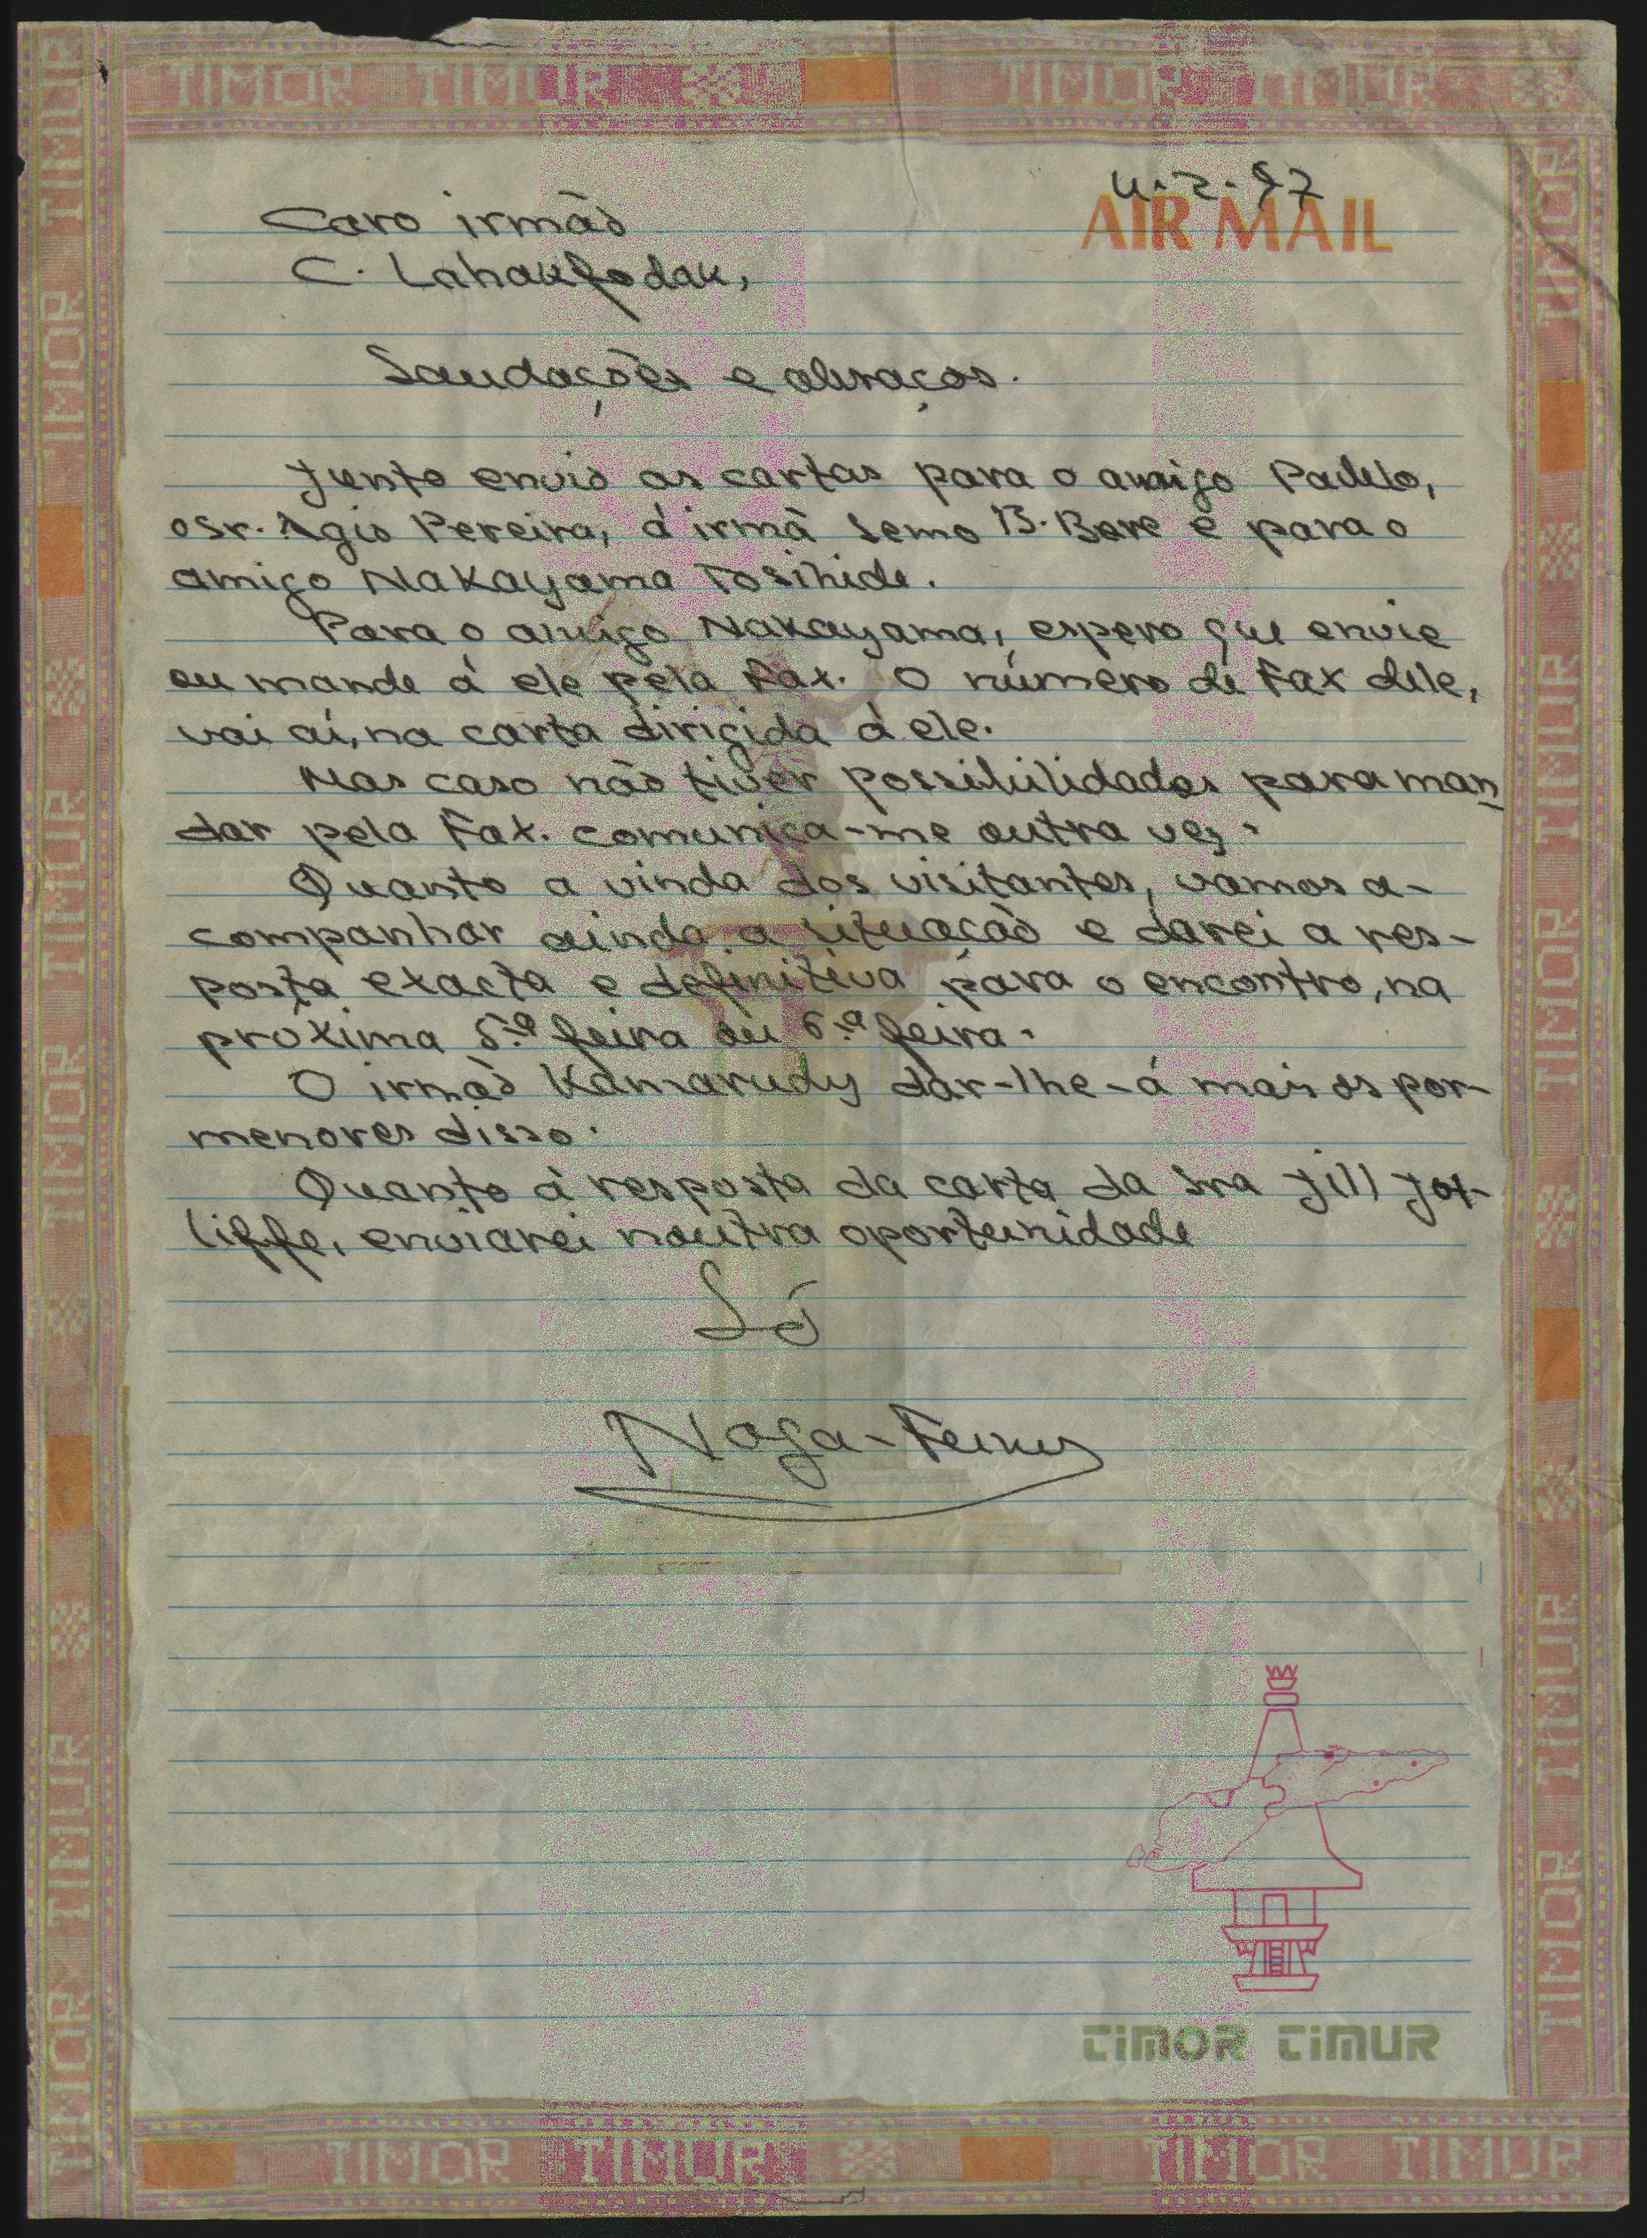 TIMOR TIMUR TIMOR TIMUR
4.2.97
AIR MAIL
Caro irmão
C. Lahakfodak,
Saudações e abraços.
Junto envio as cartas para o amigo Padilo,
o sr. Agio Pereira, á irmã Semo B. Bere e para o
amigo Nakayama Tosihide.
Para o amigo Nakayama, espero que envie
ou mande á ele pela Fax. O número de Fax dele,
vai aí, na carta dirigida á ele.
Mas caso não tiver possibilidades para man
dar pela Fax. comunica-me outra vez.
Quanto a vinda dos visitantes, vamos a-
companhar ainda a situação e darei a res-
posta exacta e definitiva para o encontro, na
próxima 5.ª feira ou 6.ª feira.
O irmão Kamarudy dar-lhe-á mais os por-
menores disso.
Quanto á resposta da carta da Sra Jill Jol-
liffe, enviarei noutra oportunidade
Só
TIMOR TIMUR
TIMOR TIMUR TIMOR TIMUR